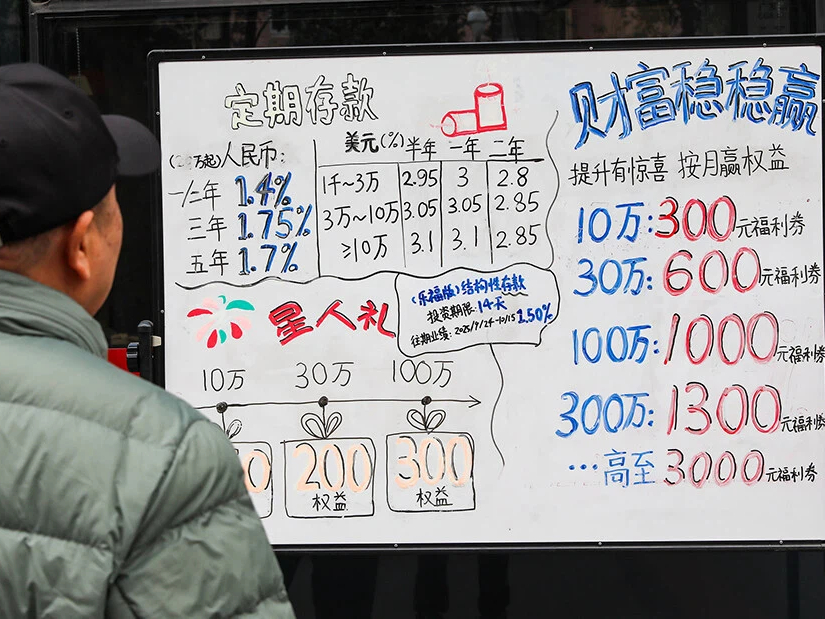 定期存款
万起)人民币:
一/二年 1.4%
三年 1.75%
五年 1.7%
美元(%) 半年 一年 二年
1千~3万 2.95 3 2.8
3万~10万 3.05 3.05 2.85
≥10万 3.1 3.1 2.85
星人礼
(乐福版)结构性存款
投资期限:14天
往期业绩:2025/9/24-10/15 1.50%
10万 30万 100万
200 300
权益 权益
财富稳稳赢
提升有惊喜 按月赢权益
10万:300元福利券
30万:600元福利券
100万:1000元福利券
300万:1300元福利券
…高至3000元福利券